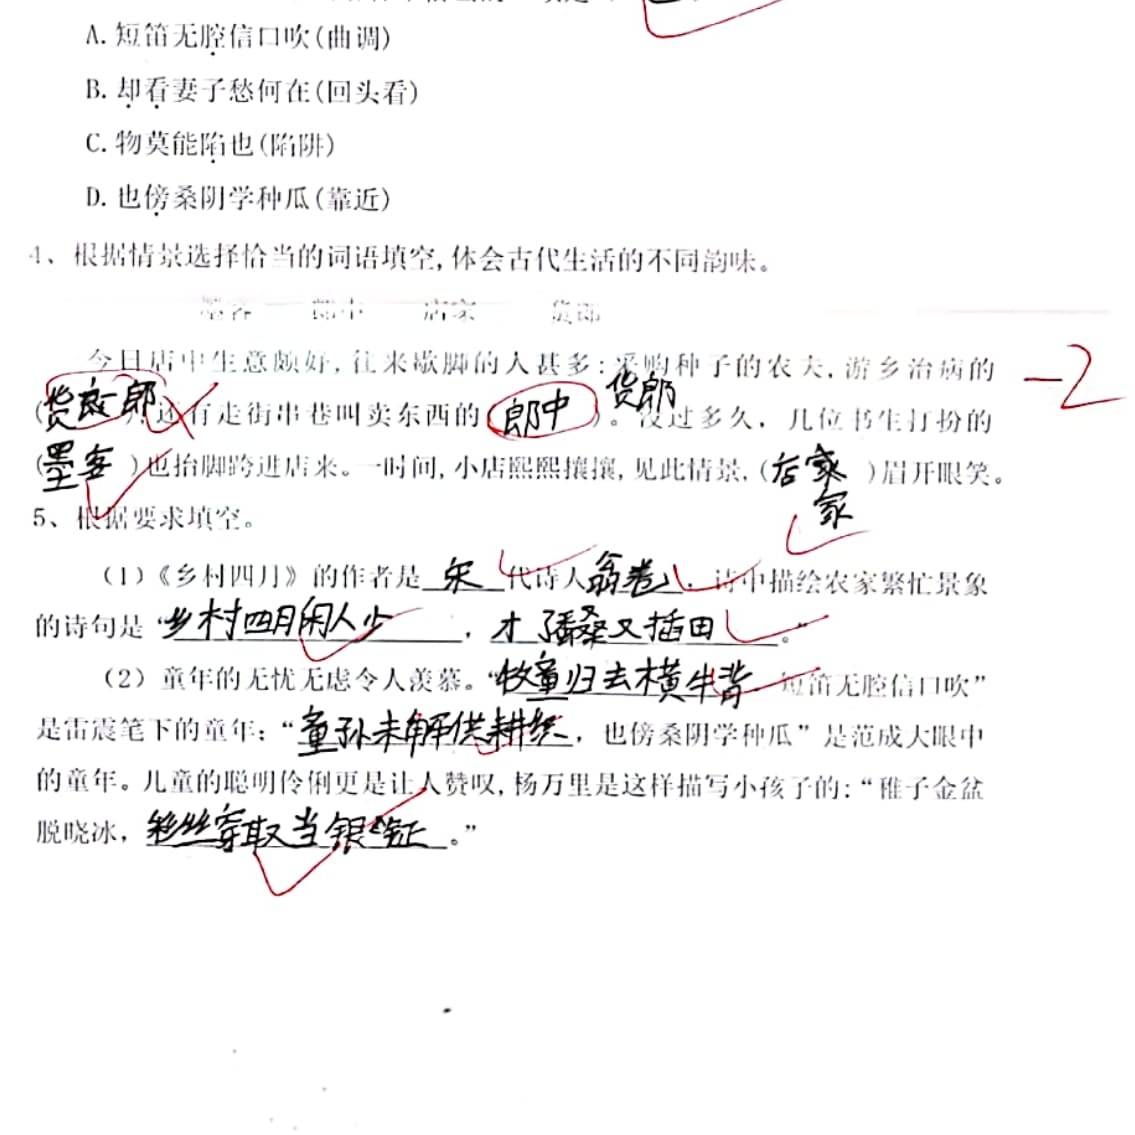 A. 短笛无腔信口吹(曲调)
B. 却看妻子愁何在(回头看)
C. 物莫能陷也(陷阱)
D. 也傍桑阴学种瓜(靠近)
4、根据情景选择恰当的词语填空,体会古代生活的不同韵味。
墨客 郎中 店家 货郎
今日店中生意颇好,往来歇脚的人甚多:采购种子的农夫,游乡治病的
(货郎),还有走街串巷叫卖东西的(郎中)。货郎 没过多久,几位书生打扮的
(墨客)也抬脚跨进店来。一时间,小店熙熙攘攘,见此情景,(店家)眉开眼笑。
家
-2
5、根据要求填空。
(1)《乡村四月》的作者是 宋 代诗人 翁卷,诗中描绘农家繁忙景象
的诗句是“乡村四月闲人少,才了蚕桑又插田。”
(2) 童年的无忧无虑令人羡慕。“牧童归去横牛背,短笛无腔信口吹”
是雷震笔下的童年;“童孙未解供耕织,也傍桑阴学种瓜”是范成大眼中
的童年。儿童的聪明伶俐更是让人赞叹,杨万里是这样描写小孩子的:“稚子金盆
脱晓冰,彩丝穿取当银钲。”